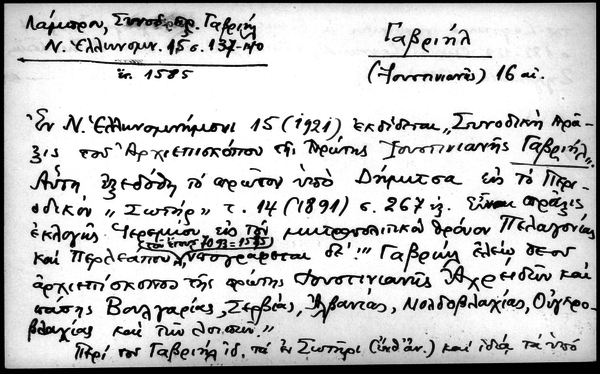 Λάμπρου, Συνοδ. πρ. Γαβριήλ
Ν. Ἑλληνομν. 15 σ. 137-140
ἔτ. 1585
Γαβριήλ
(Ἰουστινιανῆς) 16 αἰ.
Ἐν Ν. Ἑλληνομνήμονι 15 (1921) ἐκδίδεται „Συνοδικὴ πρᾶ-
ξις τοῦ Ἀρχιεπισκόπου τῆς πρώτης Ἰουστινιανῆς Γαβριήλ".
Αὕτη ἐξεδόθη τὸ πρῶτον ὑπὸ Δήμιτσα εἰς τὸ Περι-
οδικόν „Σωτήρ" τ. 14 (1891) σ. 267 ἑ. Εἶναι πρᾶξις
ἐκλογῆς Ἱερεμίου εἰς τὸν μητροπολιτικὸν θρόνον Πελαγονίας
τοῦ ἔτους 7093 = 1585
καὶ Περλεάπου, ὑπογράφεται δέ: "Γαβριὴλ ἐλέῳ θεοῦ
ἀρχιεπίσκοπος τῆς πρώτης Ἰουστινιανῆς Ἀχρειδῶν καὶ
πάσης Βουλγαρίας, Σερβίας, Ἀλβανίας, Μολδοβλαχίας, Οὐγκρο-
βλαχίας καὶ τῶν λοιπῶν."
Περὶ τοῦ Γαβριὴλ ἰδ. τὰ ἐν Σωτῆρι (ἔνθ' ἀν.) καὶ ἰδίᾳ τὰ ὑπὸ